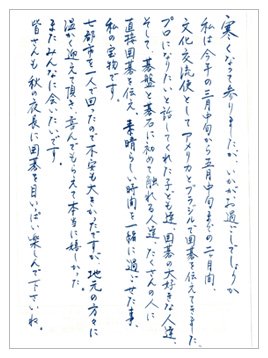 寒くなって参りましたが、いかがお過ごしでしょうか
私は今年の三月中旬から五月中旬までの二ヶ月間、
文化交流使としてアメリカとブラジルで囲碁を伝えてきました。
プロになりたいと話してくれた子ども達、囲碁の大好きな人達、
そして、碁盤と碁石に初めて触れる人達…たくさんの人に
直接囲碁を伝え、素晴らしい時間を一緒に過ごせた事、
私の宝物です。
七都市を一人で回ったので不安も大きかったですが、地元の方々に
温かく迎えて頂き、喜んでもらえて本当に嬉しかった
またみんなに会いたいです。
皆さんも秋の夜長に囲碁を目いっぱい楽しんで下さいね。